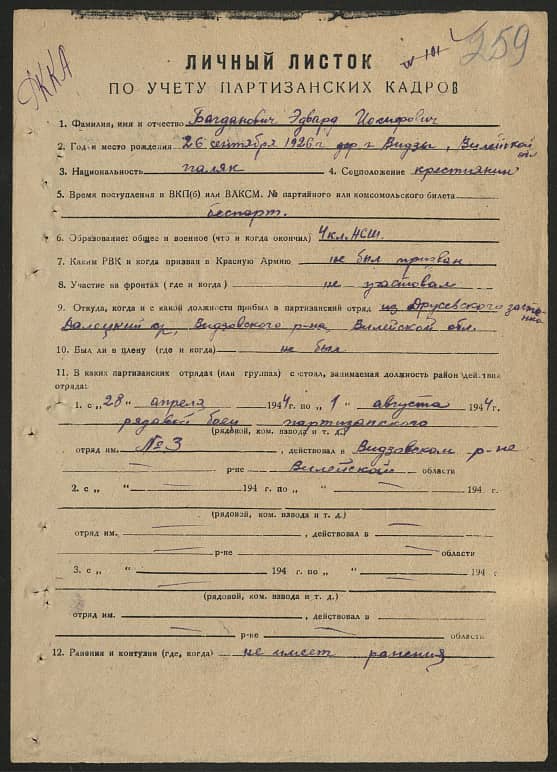 РККА
№ 101
259
ЛИЧНЫЙ ЛИСТОК
ПО УЧЕТУ ПАРТИЗАНСКИХ КАДРОВ
1. Фамилия, имя и отчество Багданович Эдвард Иосифович
2. Год и место рождения 26 сентября 1926 г дер. г Видзы, Вилейской обл
3. Национальность паляк 4. Соцположение крестиянин
5. Время поступления в ВКП(б) или ВЛКСМ. № партийного или комсомольского билета
беспарт.
6. Образование: общее и военное (что и когда окончил) 4 кл. НСШ.
7. Каким РВК и когда призван в Красную Армию не был призван
8. Участие на фронтах (где и когда) не участовал
9. Откуда, когда и с какой должности прибыл в партизанский отряд из Друсевского застенка
Видзовского р-на Вилейской обл.
10. Был ли в плену (где и когда) не был
11. В каких партизанских отрядах (или группах) состоял, занимаемая должность район действия
отряда:
1. с „28" апреля 1944 г. по „1" августа 1944 г.
рядовой боец партизанского
(рядовой, ком. взвода и т. д.)
отряд им. № 3, действовал в Видзовском р-не
р-не Вилейской области
2. с „ " 194 г. по „ " 194 г.
(рядовой, ком. взвода и т. д.)
отряд им. , действовал в
р-не области
3. с „ " 194 г. по „ " 194 г.
(рядовой, ком. взвода и т. д.)
отряд им. , действовал в
р-не область
12. Ранения и контузии (где, когда) не имеет ранения